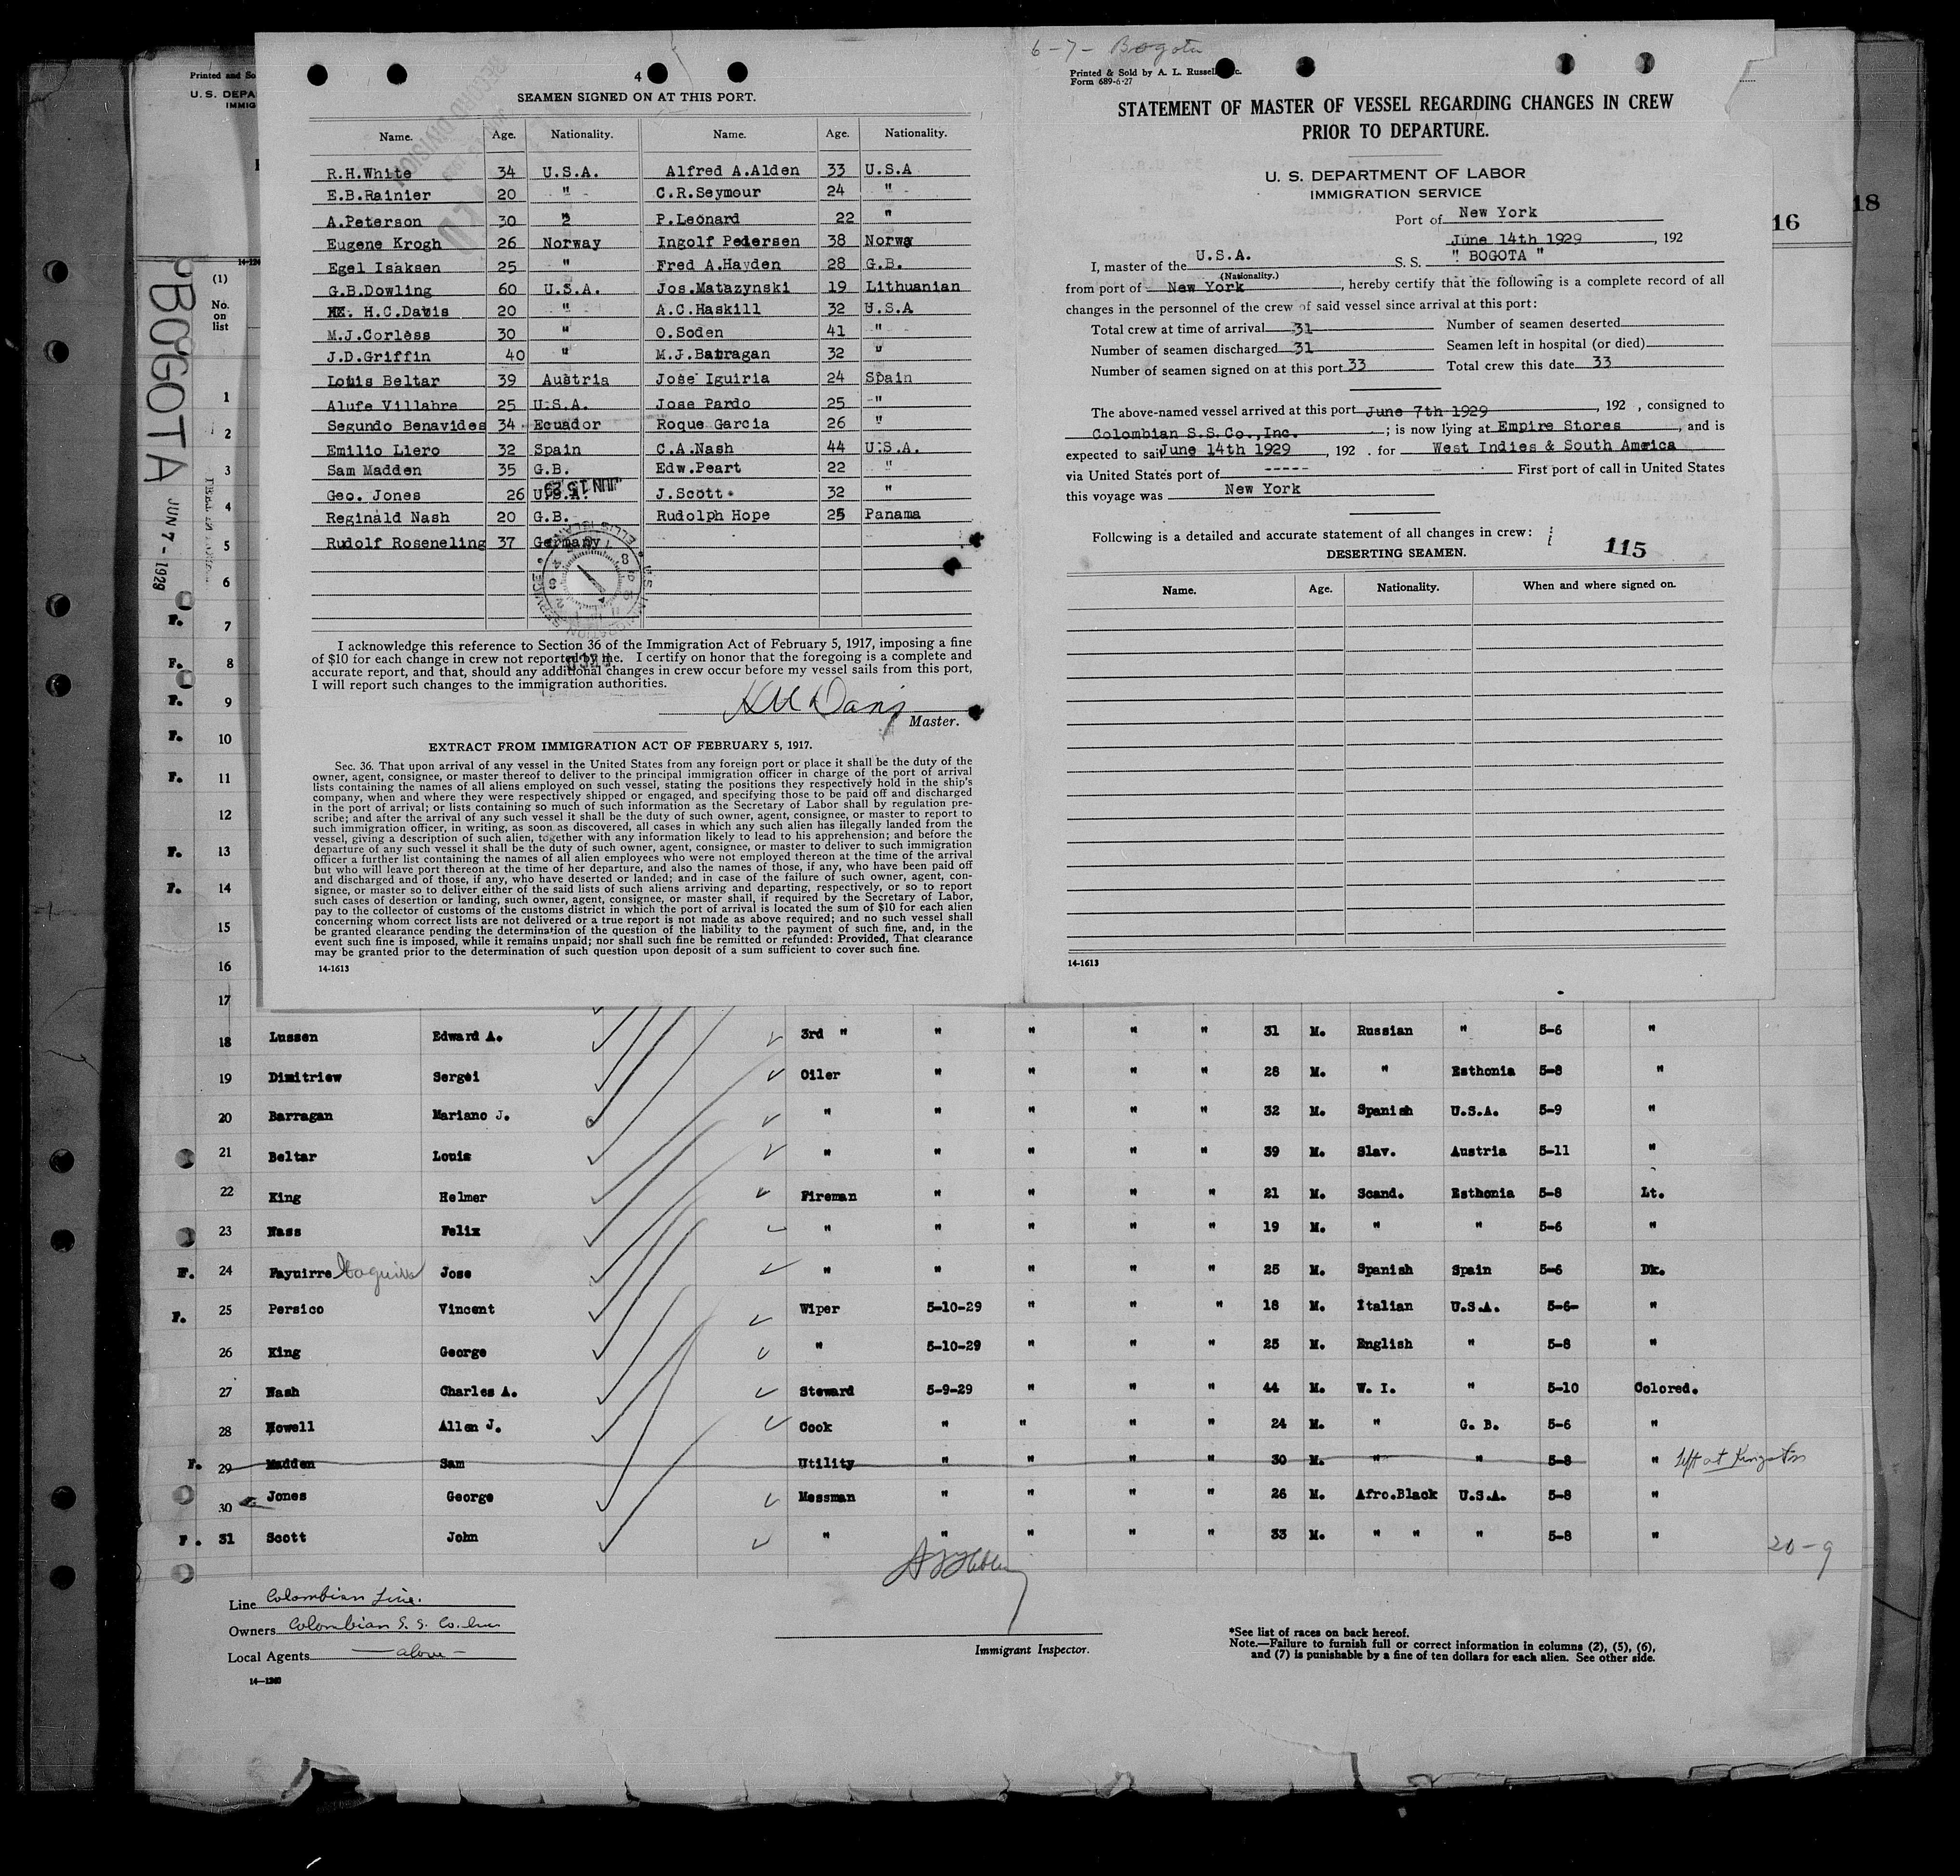 6-7- Bogota
Printed and So
U. S. DEPA
IMMIG
14-124
BOGOTA
JUN 7 - 1929
(1)
No.
on
list
1
2
3
4
5
6
F. 7
F. 8
F. 9
F. 10
F. 11
12
F. 13
F. 14
15
16
17
4
SEAMEN SIGNED ON AT THIS PORT.
Name. Age. Nationality. Name. Age. Nationality.
R.H.White 34 U.S.A. Alfred A.Alden 33 U.S.A
E.B.Rainier 20 " C.R.Seymour 24 "
A.Peterson 30 " P.Leonard 22 "
Eugene Krogh 26 Norway Ingolf Pedersen 38 Norwa
Egel Isaksen 25 " Fred A.Hayden 28 G.B.
G.B.Dowling 60 U.S.A. Jos.Matazynski 19 Lithuanian
H.C.Davis 20 " A.C.Haskill 32 U.S.A
M.J.Corless 30 " O.Soden 41 "
J.D.Griffin 40 " M.J.Barragan 32 "
Louis Beltar 39 Austria Jose Iguiria 24 Spain
Alufe Villabre 25 U.S.A. Jose Pardo 25 "
Segundo Benavides 34 Ecuador Roque Garcia 26 "
Emilio Llero 32 Spain C.A.Nash 44 U.S.A.
Sam Madden 35 G.B. Edw.Peart 22 "
Geo. Jones 26 U.S.A. J.Scott 32 "
Reginald Nash 20 G.B. Rudolph Hope 25 Panama
Rudolf Roseneling 37 Germany
JUN 15 29
I acknowledge this reference to Section 36 of the Immigration Act of February 5, 1917, imposing a fine
of $10 for each change in crew not reported by me. I certify on honor that the foregoing is a complete and
accurate report, and that, should any additional changes in crew occur before my vessel sails from this port,
I will report such changes to the immigration authorities.
Master.
EXTRACT FROM IMMIGRATION ACT OF FEBRUARY 5, 1917.
Sec. 36. That upon arrival of any vessel in the United States from any foreign port or place it shall be the duty of the
owner, agent, consignee, or master thereof to deliver to the principal immigration officer in charge of the port of arrival
lists containing the names of all aliens employed on such vessel, stating the positions they respectively hold in the ship's
company, when and where they were respectively shipped or engaged, and specifying those to be paid off and discharged
in the port of arrival; or lists containing so much of such information as the Secretary of Labor shall by regulation pre-
scribe; and after the arrival of any such vessel it shall be the duty of such owner, agent, consignee, or master to report to
such immigration officer, in writing, as soon as discovered, all cases in which any such alien has illegally landed from the
vessel, giving a description of such alien, together with any information likely to lead to his apprehension; and before the
departure of any such vessel it shall be the duty of such owner, agent, consignee, or master to deliver to such immigration
officer a further list containing the names of all alien employees who were not employed thereon at the time of the arrival
but who will leave port thereon at the time of her departure, and also the names of those, if any, who have been paid off
and discharged and of those, if any, who have deserted or landed; and in case of the failure of such owner, agent, con-
signee, or master so to deliver either of the said lists of such aliens arriving and departing, respectively, or so to report
such cases of desertion or landing, such owner, agent, consignee, or master shall, if required by the Secretary of Labor,
pay to the collector of customs of the customs district in which the port of arrival is located the sum of $10 for each alien
concerning whom correct lists are not delivered or a true report is not made as above required; and no such vessel shall
be granted clearance pending the determination of the question of the liability to the payment of such fine, and, in the
event such fine is imposed, while it remains unpaid; nor shall such fine be remitted or refunded: Provided, That clearance
may be granted prior to the determination of such question upon deposit of a sum sufficient to cover such fine.
14-1613
Printed & Sold by A. L. Russell
Form 689-6-27
STATEMENT OF MASTER OF VESSEL REGARDING CHANGES IN CREW
PRIOR TO DEPARTURE.
U. S. DEPARTMENT OF LABOR
IMMIGRATION SERVICE
Port of New York
June 14th 1929, 192
I, master of the U.S.A. S. S. " BOGOTA "
(Nationality.)
from port of New York, hereby certify that the following is a complete record of all
changes in the personnel of the crew of said vessel since arrival at this port:
Total crew at time of arrival 31 Number of seamen deserted
Number of seamen discharged 31 Seamen left in hospital (or died)
Number of seamen signed on at this port 33 Total crew this date 33
The above-named vessel arrived at this port June 7th 1929, 192 , consigned to
Colombian S.S.Co.,Inc. ; is now lying at Empire Stores, and is
expected to sail June 14th 1929, 192 . for West Indies & South America
via United States port of ----- First port of call in United States
this voyage was New York
Following is a detailed and accurate statement of all changes in crew:
115
DESERTING SEAMEN.
Name. Age. Nationality. When and where signed on.
14-1613
16
18
18 Lussen Edward A. 3rd " " " " " 31 M. Russian " 5-6 "
19 Dimitriew Sergei Oiler " " " " 28 M. " Esthonia 5-8 "
20 Barragan Mariano J. " " " " " 32 M. Spanish U.S.A. 5-9 "
21 Beltar Louis " " " " " 39 M. Slav. Austria 5-11 "
22 King Helmer Fireman " " " " 21 M. Scand. Esthonia 5-8 Lt.
23 Nass Felix " " " " " 19 M. " " 5-6 "
F. 24 Fayuirre Jose " " " " " 25 M. Spanish Spain 5-6 Dk.
F. 25 Persico Vincent Wiper 5-10-29 " " " 18 M. Italian U.S.A. 5-6- "
26 King George " 5-10-29 " " " 25 M. English " 5-8 "
27 Nash Charles A. Steward 5-9-29 " " " 44 M. W. I. " 5-10 Colored.
28 Howell Allen J. Cook " " " " 24 M. " G. B. 5-6 "
F. 29 Madden Sam Utility " " " " 30 M. " " 5-8 " left at Kingston
30 Jones George Messman " " " " 26 M. Afro.Black U.S.A. 5-8 "
F. 31 Scott John " " " " " 33 M. " " " 5-8 "
20-9
Line Colombian Line.
Owners Colombian S. S. Co. Inc
Local Agents - above -
14-1240
Immigrant Inspector.
*See list of races on back hereof.
Note.—Failure to furnish full or correct information in columns (2), (5), (6),
and (7) is punishable by a fine of ten dollars for each alien. See other side.